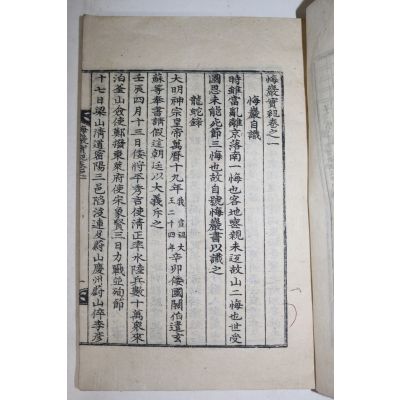 悔巖實紀卷之一
悔巖自識
時雖當亂離京落南一悔也客地慈親未返故山二悔也世受
國恩未能死節三悔也故自號悔巖書以識之
龍蛇錄
大明神宗皇帝萬曆十九年我宣祖大王二十四年辛卯倭國關伯遣玄
蘇等奉書請假道朝廷以大義斥之
壬辰四月十三日倭將平秀吉使清正率水陸兵數十萬衆來
泊釜山僉使鄭撥東萊府使宋象賢三日力戰並殉節
十七日梁山清道密陽三邑陷沒連及蔚山慶州蔚山倅李彦
悔巖實紀卷之一
一